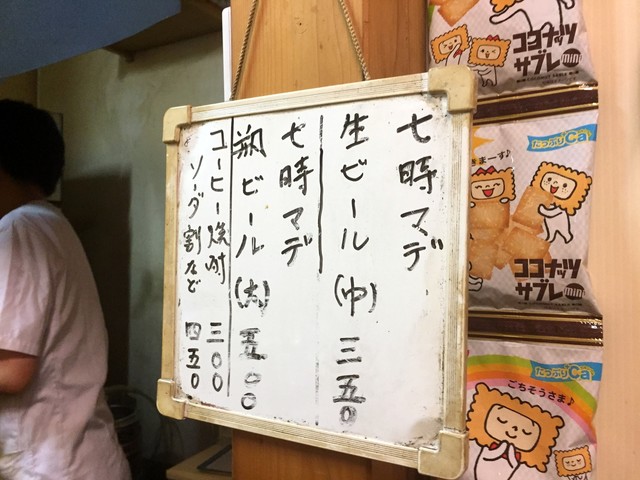 七時マデ
生ビール(中) 三五〇
七時マデ
瓶ビール(大) 五〇〇
コーヒー焼酎 三〇〇
ソーダ割など 四五〇
ココナッツ
サブレmini
たっぷりCa
きまーす♪
ココナッツ
サブレmini
たっぷりCa
ごちそうさま♪